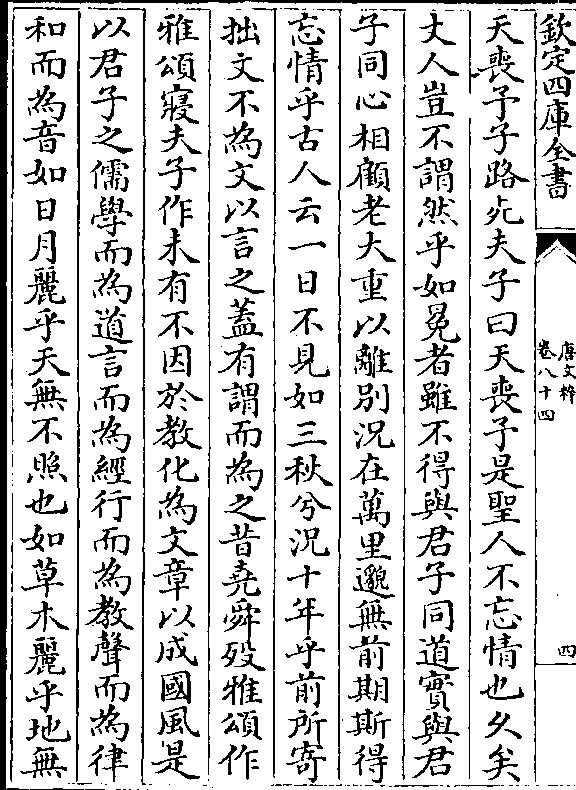 欽定四庫全書
唐文粹
卷八十四
四
天喪予子路死夫子曰天喪予是聖人不忘情也久矣
丈人豈不謂然乎如冕者雖不得與君子同道實與君
子同心相顧老大重以離別況在萬里邈無前期斯得
忘情乎古人云一日不見如三秋兮況十年乎前所寄
拙文不為文以言之蓋有謂而為之昔堯舜歿雅頌作
雅頌寢夫子作未有不因於教化為文章以成國風是
以君子之儒學而為道言而為經行而為教聲而為律
和而為音如日月麗乎天無不照也如草木麗乎地無